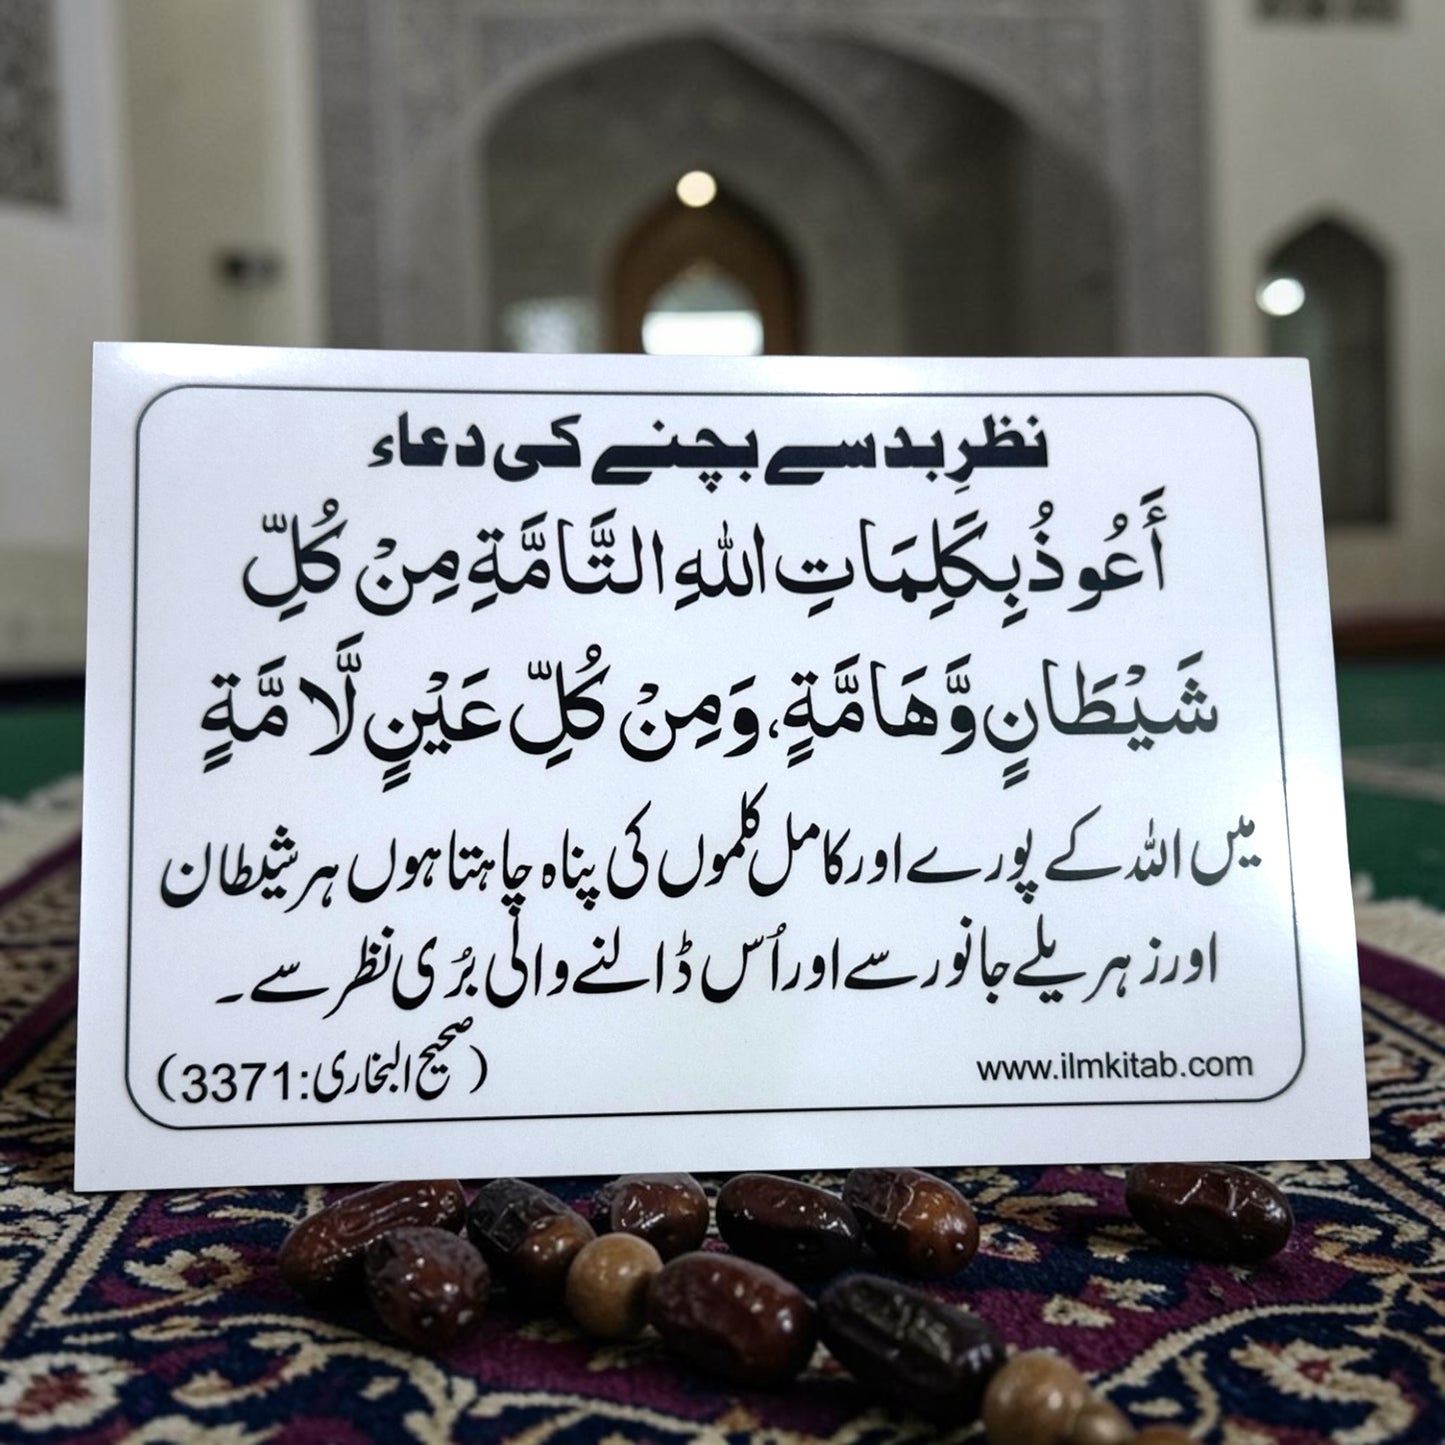 نظرِ بد سے بچنے کی دعاء
أَعُوذُ بِكَلِمَاتِ اللهِ التَّامَّةِ مِنْ كُلِّ
شَيْطَانٍ وَّهَامَّةٍ، وَمِنْ كُلِّ عَيْنٍ لَّامَّةٍ
میں اللہ کے پورے اور کامل کلموں کی پناہ چاہتا ہوں ہر شیطان
اور زہریلے جانور سے اور اُس ڈالنے والی بُری نظر سے۔
(صحیح البخاری:3371)
www.ilmkitab.com